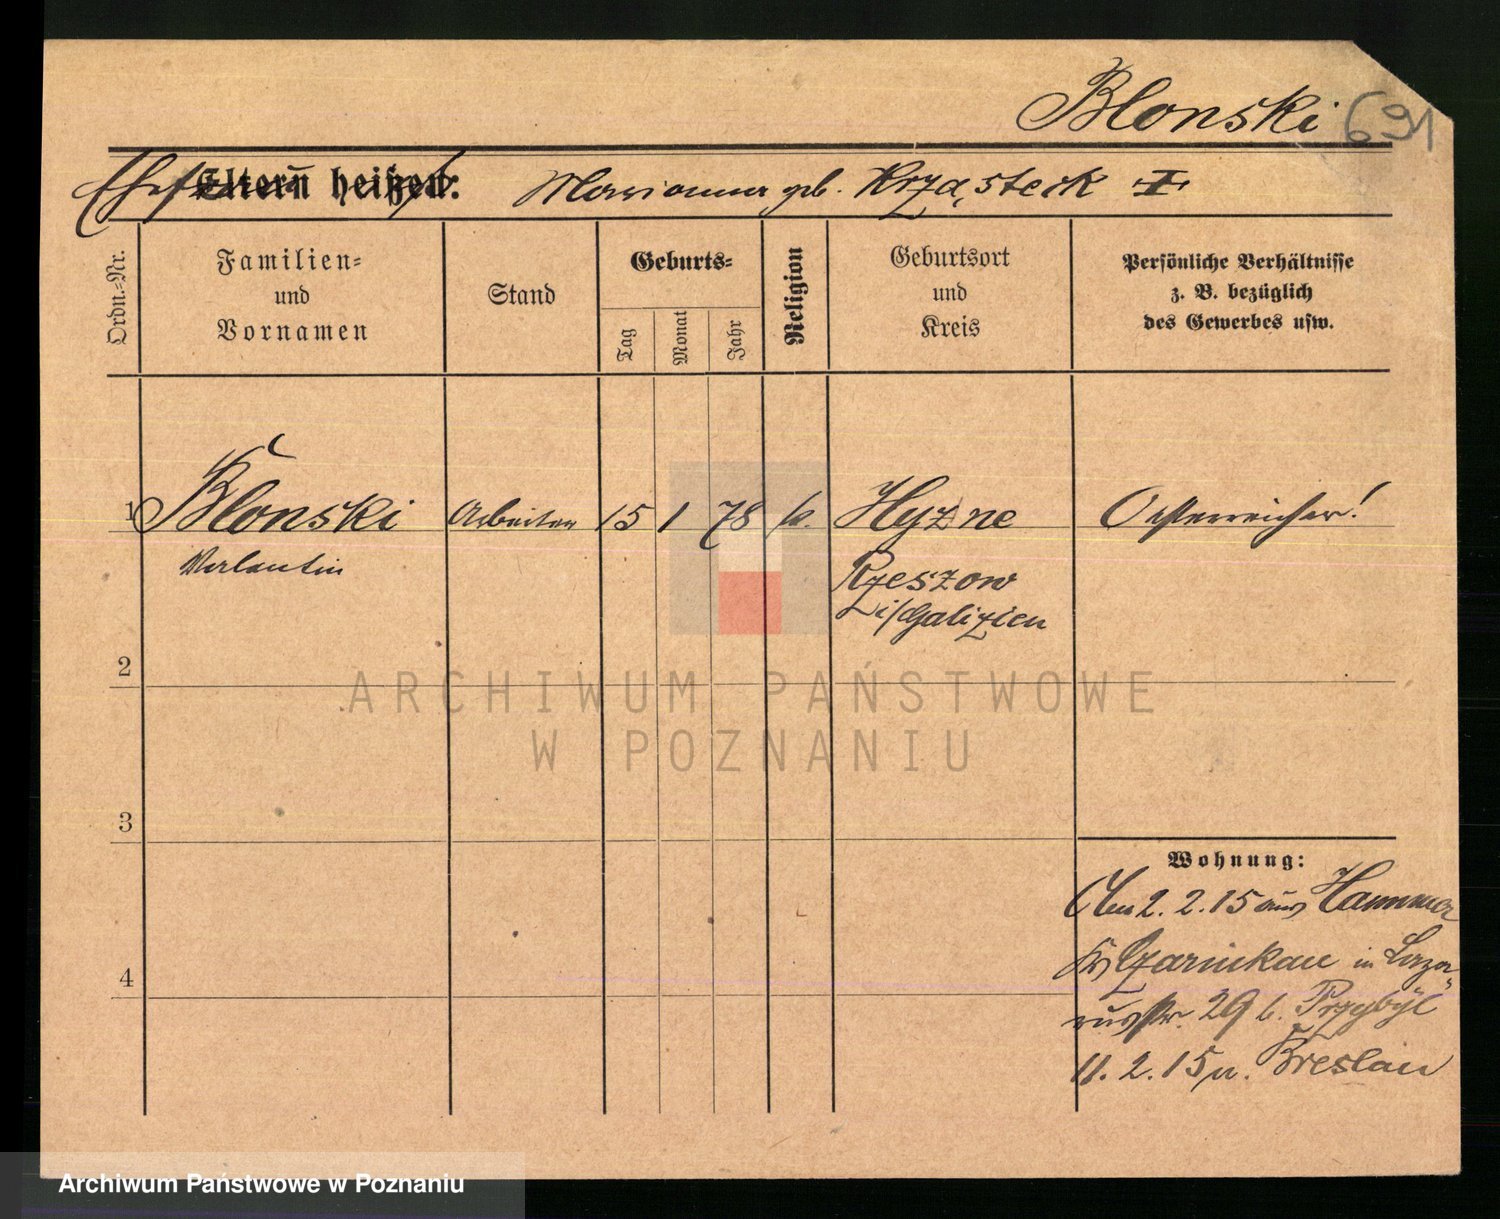 Blonski 691
Eltern heißen: Marianna geb. Krząsteck I
Ordn.-Nr.
Familien-
und
Vornamen
Stand
Geburts-
Tag
Monat
Jahr
Religion
Geburtsort
und
Kreis
Persönliche Verhältnisse
z. B. bezüglich
des Gewerbes usw.
1 Blonski Arbeiter 15 1 78 k. Hyzne Oesterreicher!
Valentin
Rzeszow
i/Galizien
2
ARCHIWUM PAŃSTWOWE
W POZNANIU
3
Wohnung:
2.2.15 aus Hammer
Kr. Czarnikau in Laza-
4
russtr. 29 b. Przybyl
11.2.15 n. Breslau
Archiwum Państwowe w Poznaniu